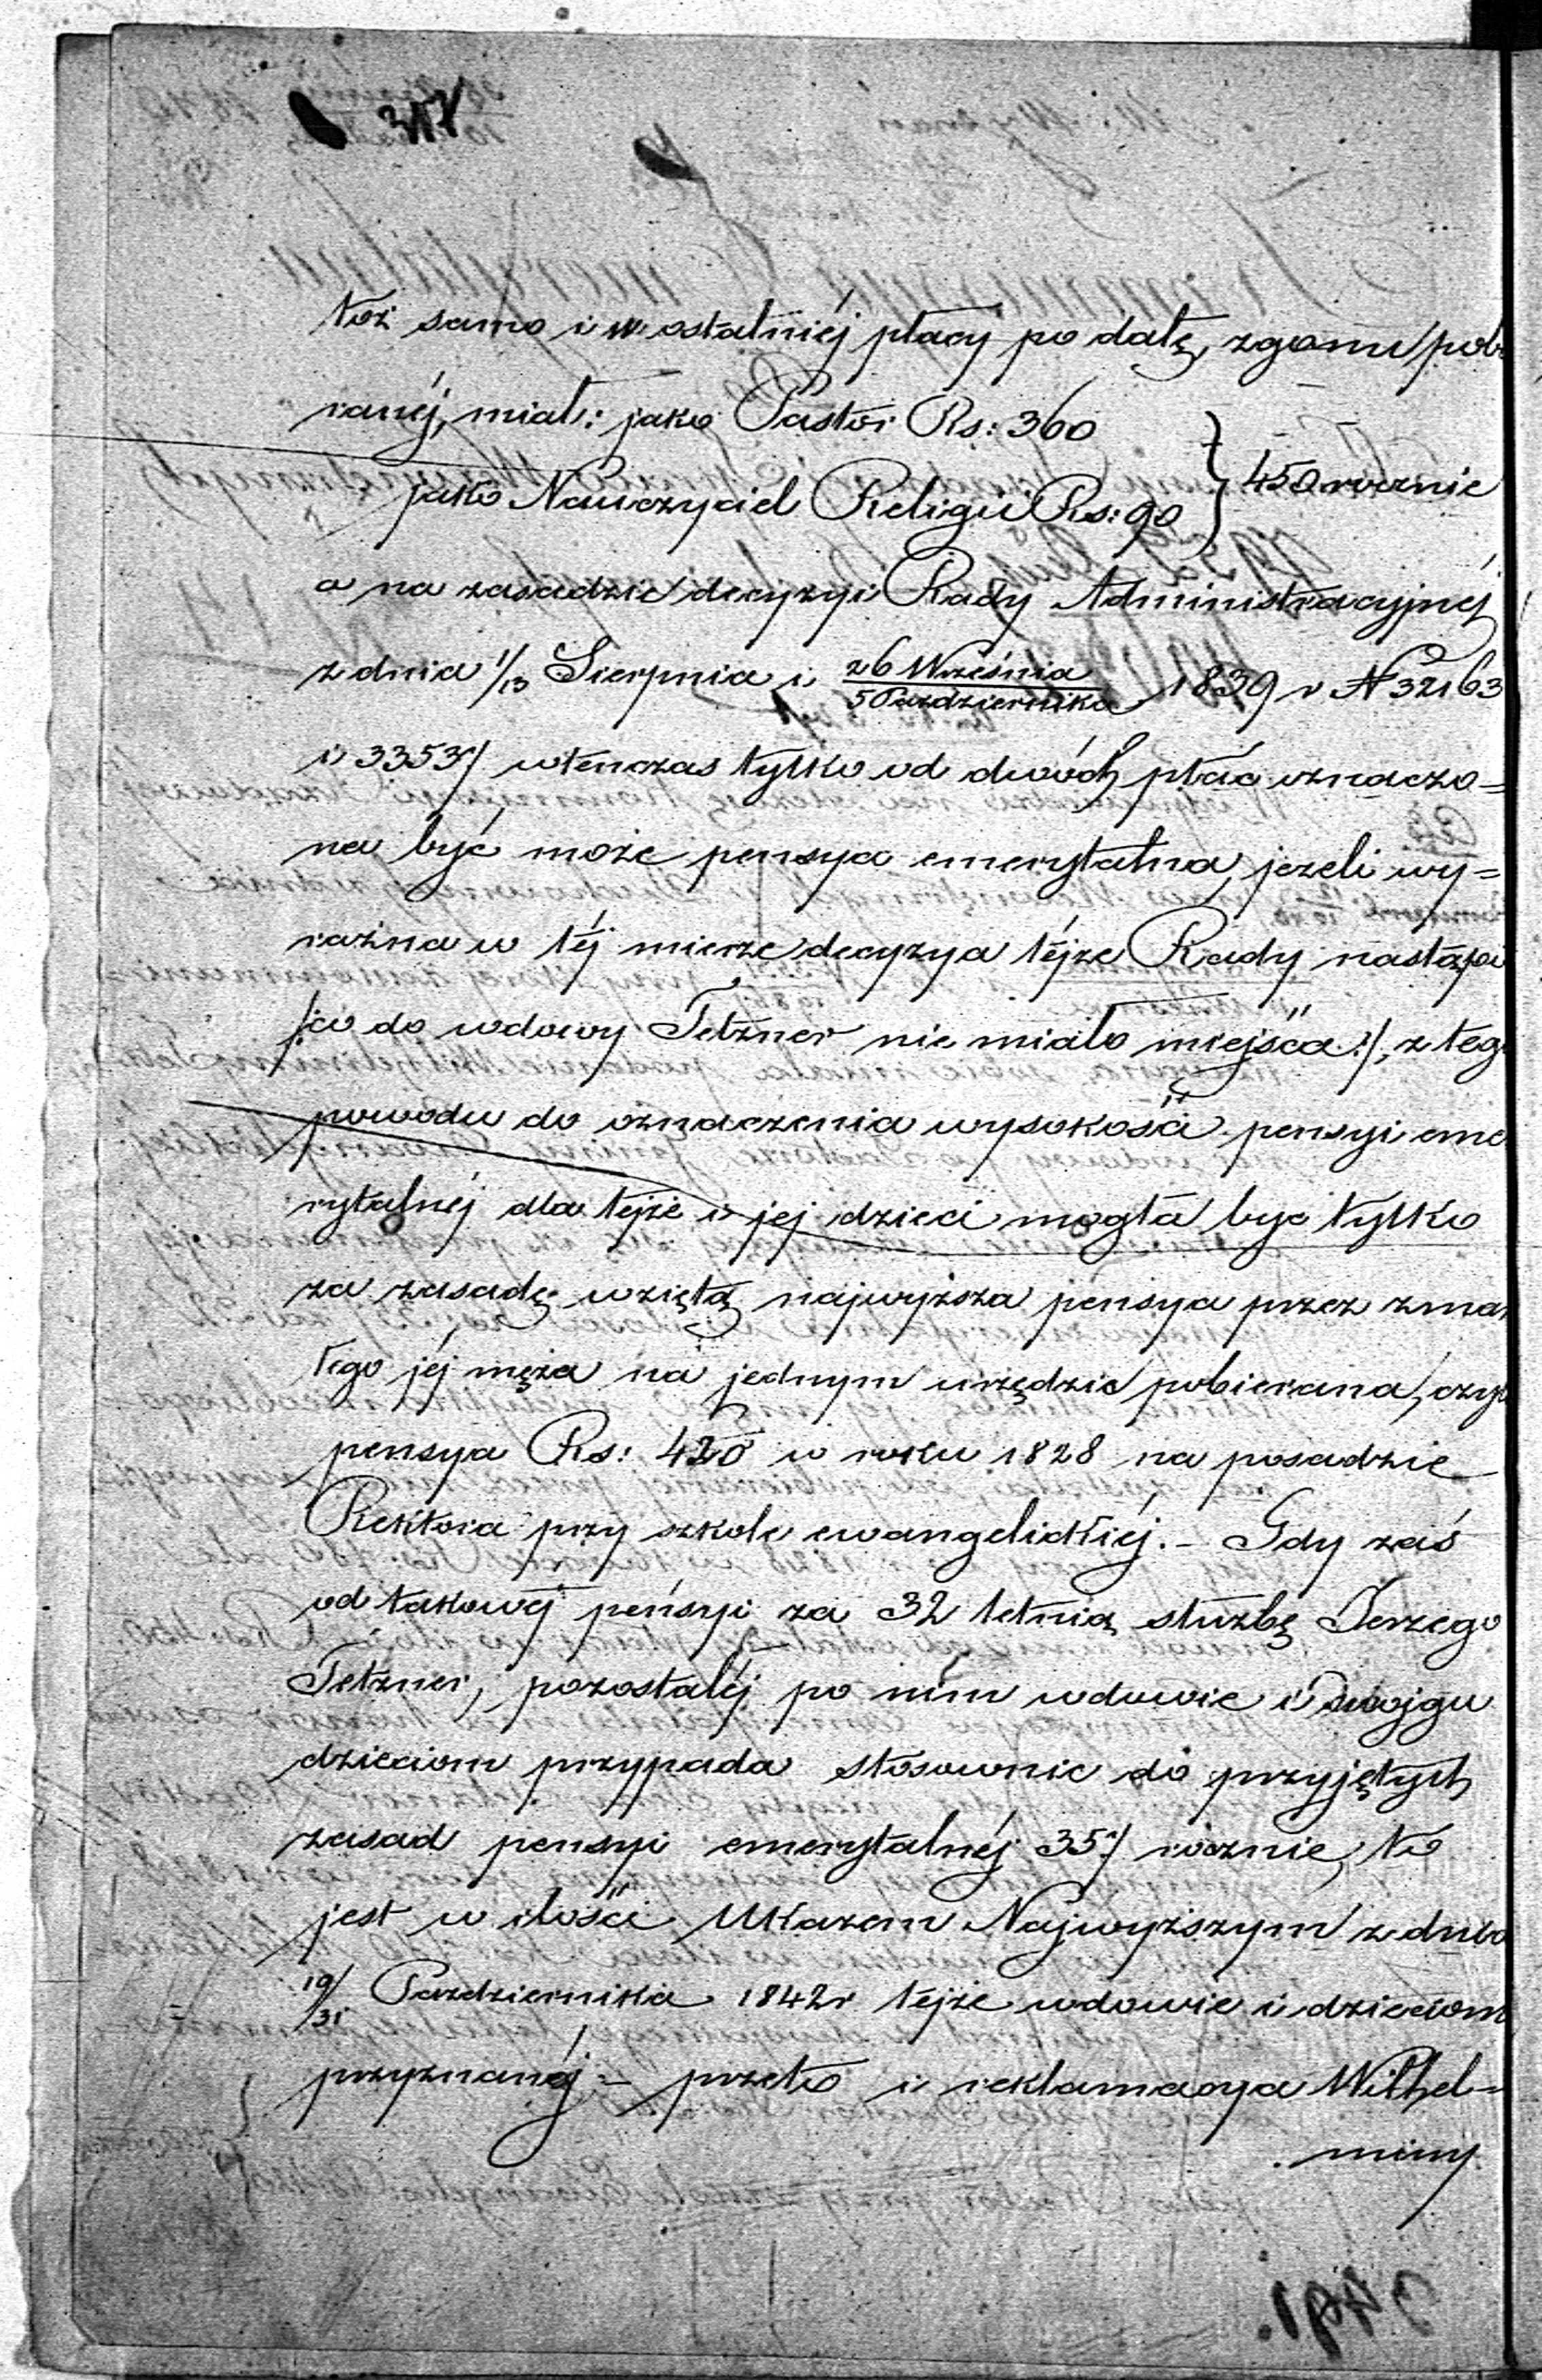 317
toż samo i w ostatniéj płacy po datę zgonu pob
ranéj, miał: jako Pastor Rs: 360
jako Nauczyciel Religii Rs: 90 } 450 rocznie
a na zasadzie decyzyi Rady Administracyjnéj
z dnia 1/13 Sierpnia i 26 Września/5 Października 1839 r N 32163
i 33537 wtenczas tylko od dwóch płac oznaczo=
na być może pensya emerytalna, jeżeli wy=
raźna w téj mierze decyzya téjże Rady nastąpi
/:co do wdowy Tetzner nie miało miejsca:/, z teg
powodu do oznaczenia wysokości pensyi eme
rytalnéj dla tejże i jej dzieci mogła być tylko
za zasadę wziętą najwyższa pensya przez zmar
łego jéj męża na jednym urzędzie pobierana, czy
pensya Rs: 420 w roku 1828 na posadzie
Rektora przy szkole ewangelickiéj. - Gdy zaś
od takowéj pensyi za 32 letnią służbę Jerzego
Tetzner, pozostałéj po nim wdowie i dwojgu
dzieciom przypada stosownie do przyjętych
zasad pensyi emerytalnéj 357 rocznie, to
jest w ilości Ukazem Najwyższym z dnia
19/31 Października 1842 r tejże wdowie i dzieciom
przyznanéj - przeto i reklamacya Wilhel=
miny